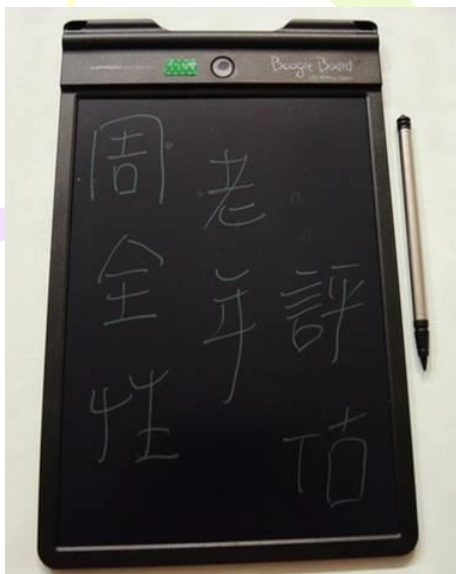 Boogie Board
周全性
老年
評估